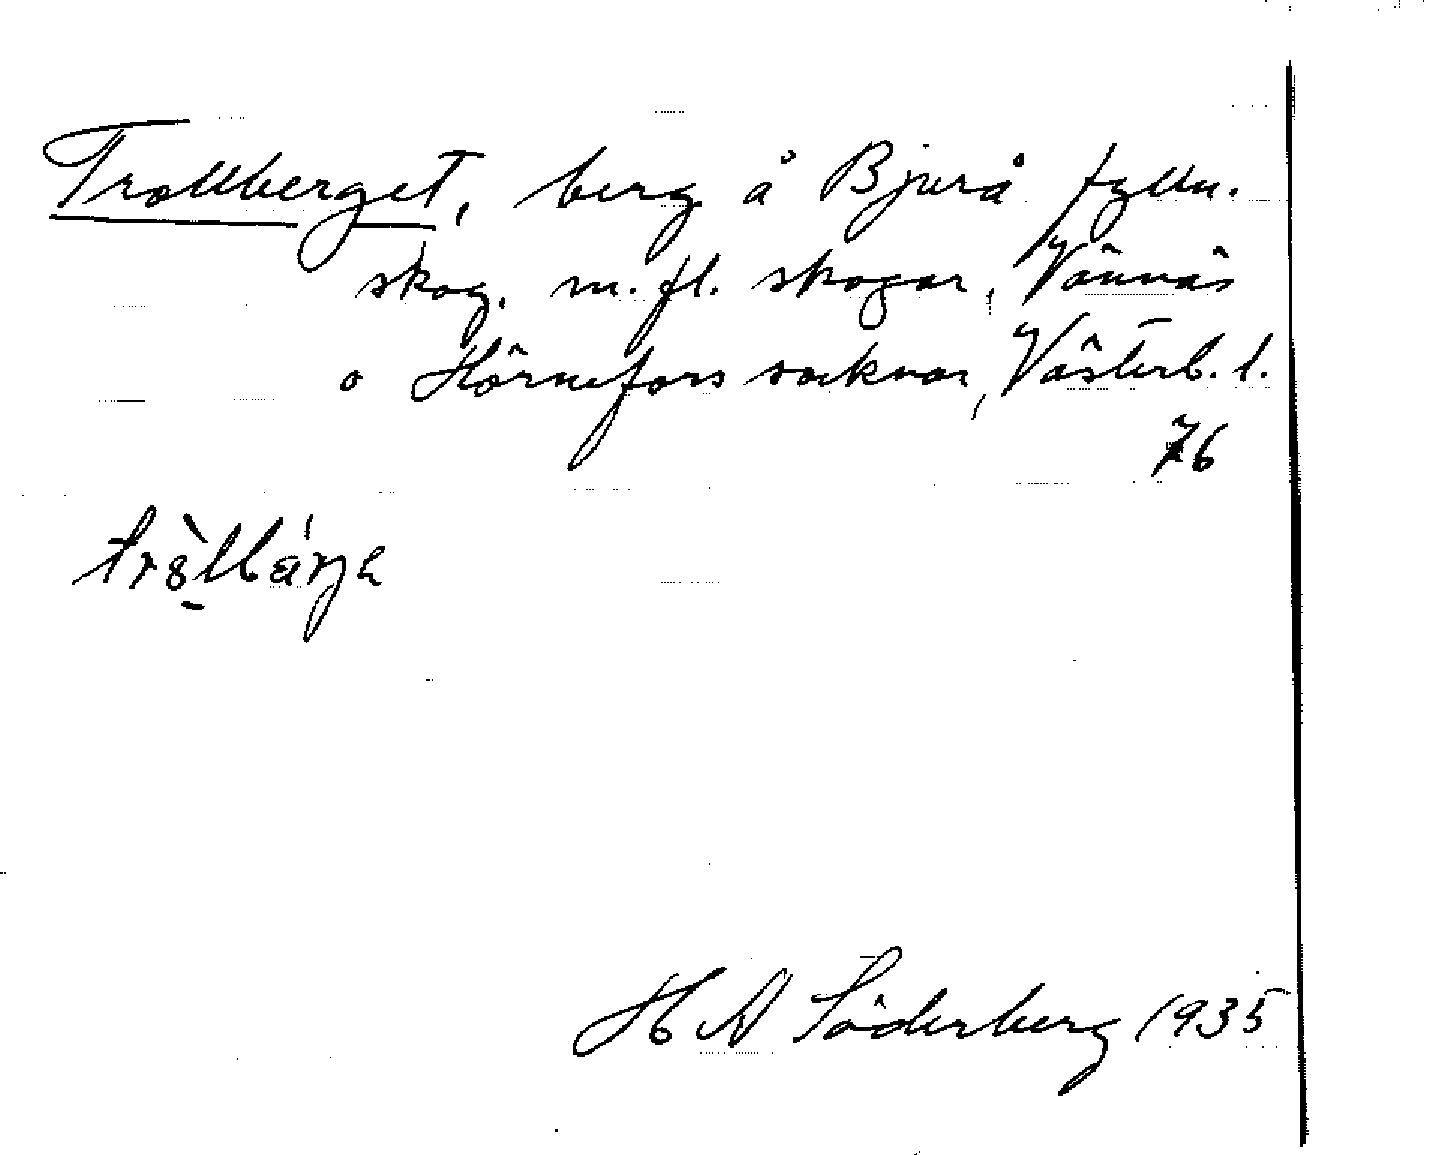 Trollberget, berg å Bjurå fylln.
skog. m. fl. skogar, Vännäs
o Hörnefors socknar, Västerb. l.
76
H N Söderberg 1935